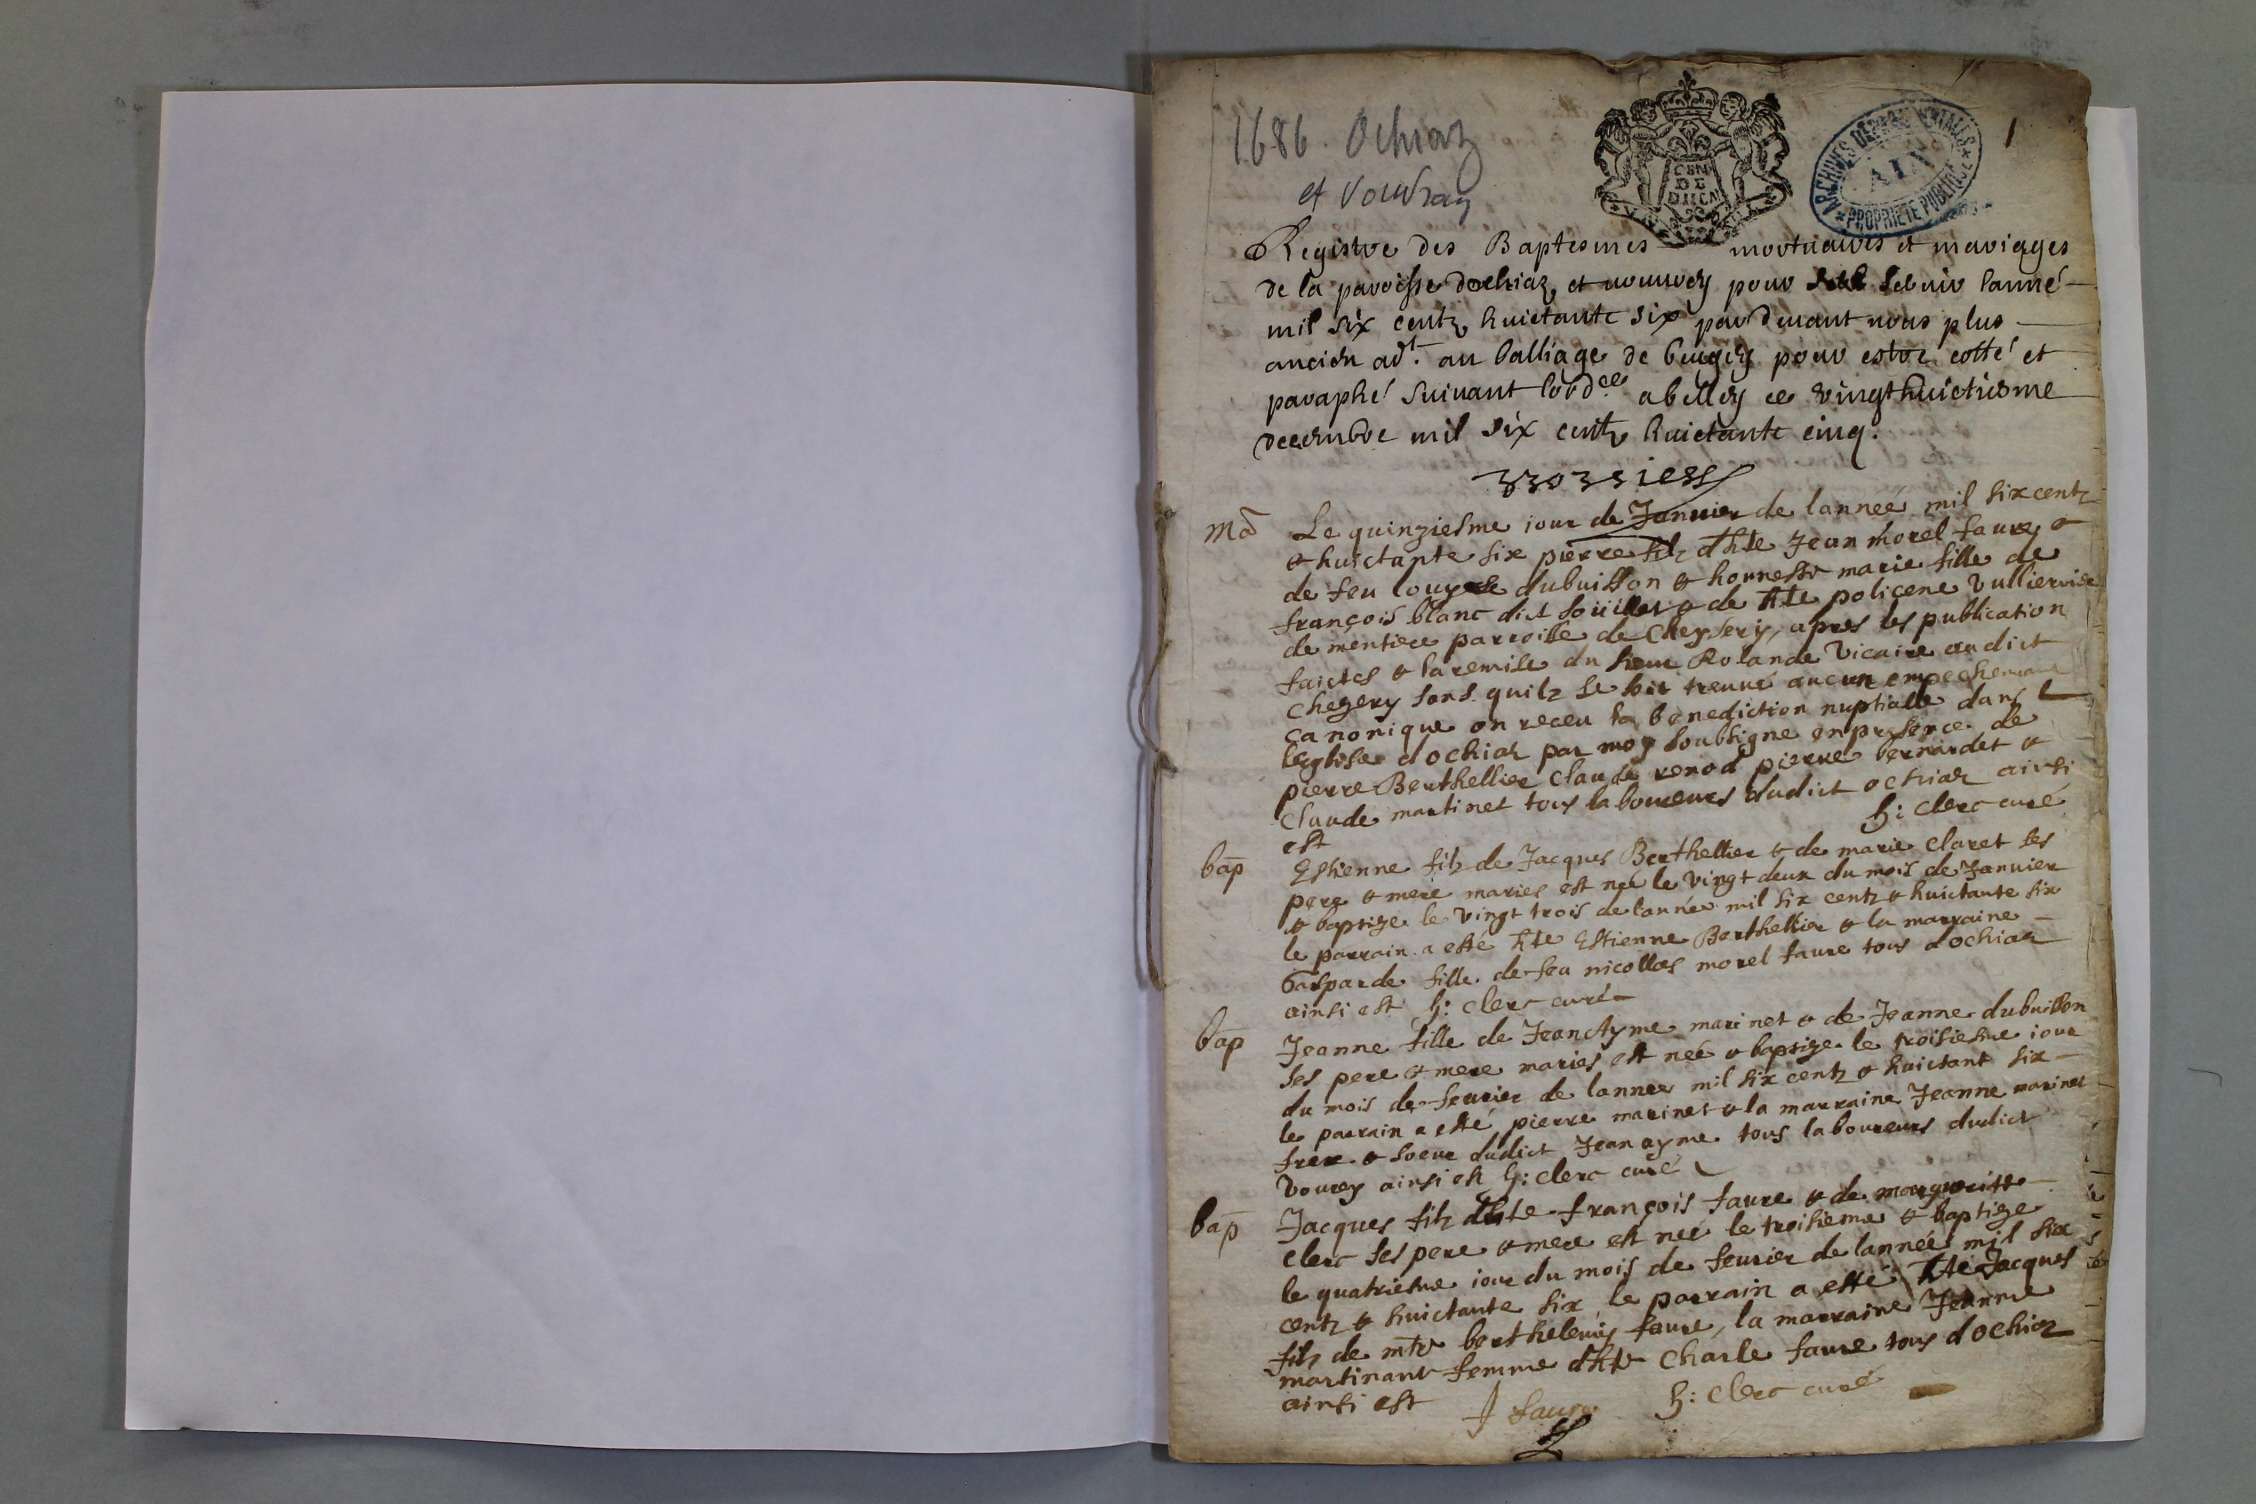 1686. Ochiaz
et Vouvray
GEN
DE
ARCHIVES DÉPARTEMENTALES
AIN
PROPRIÉTÉ PUBLIQUE
1
Registre des Baptesmes mortuaires et mariages
de la paroisse dochiaz et vouvrey pour servir lanné
mil six centz huictante six pardevant nous plus
ancien adt. au balliage de beugey pour estre cotté et
paraphé suivant lordce abelley ce vingthuictiesme
decembre mil six centz huictante cinq.
Ma Le quinziesme iour de Januier de lanneé mil six centz
& huictante six pierre filz dhte Jean morel faure &
de feu louyse dubuisson & honneste marie fille de
françois blanc dict & de hte policene
de mentiere parroisse de Cheysery, apres les publication
faictes & la remise du sieur Rolande Vicaire audict
Chezery sans quilz se soit treuué aucun empechement
canonique on receu la benediction nuptialle dans
leglise dochiaz par moy soubsigne en presence de
pierre Berthellier Claude renod pierre bernardet &
Claude martinet tous laboureurs dudict ochiaz ainsi
est h: clerc curé
bap Estienne filz de Jacques Berthellier & de marie Claret ses
pere & mere maries est neé le vingt deux du mois de Januier
& baptize le vingt trois de lannee mil six centz & huictante six
le parrain a esté hte Estienne Berthellier & la marraine
Gasparde fille de feu nicollas morel faure tous dochiaz
ainsi est h: clerc curé
bap Jeanne fille de Jean Ayme marinet & de Jeanne dubuisson
ses pere & mere maries est neé & baptize le troisiesme iour
du mois de feurier de lannee mil six centz & huictant six
le parrain a esté pierre marinet & la marraine Jeanne marinet
frere & soeur dudict Jean ayme tous laboureurs dudict
vourey ainsi est h: clerc curé
bap Jacques filz dhte françois faure & de margueritte
clerc ses pere & mere est neé le troisieme & baptize
le quatriesme iour du mois de feurier de lanneé mil six
centz & huictante six, le parrain a esté hte Jacques
filz de mtre berthelemy faure, la marraine Jeanne
martinant femme dhte Charle faure tous dochiaz
ainsi est J faure h: clerc curé